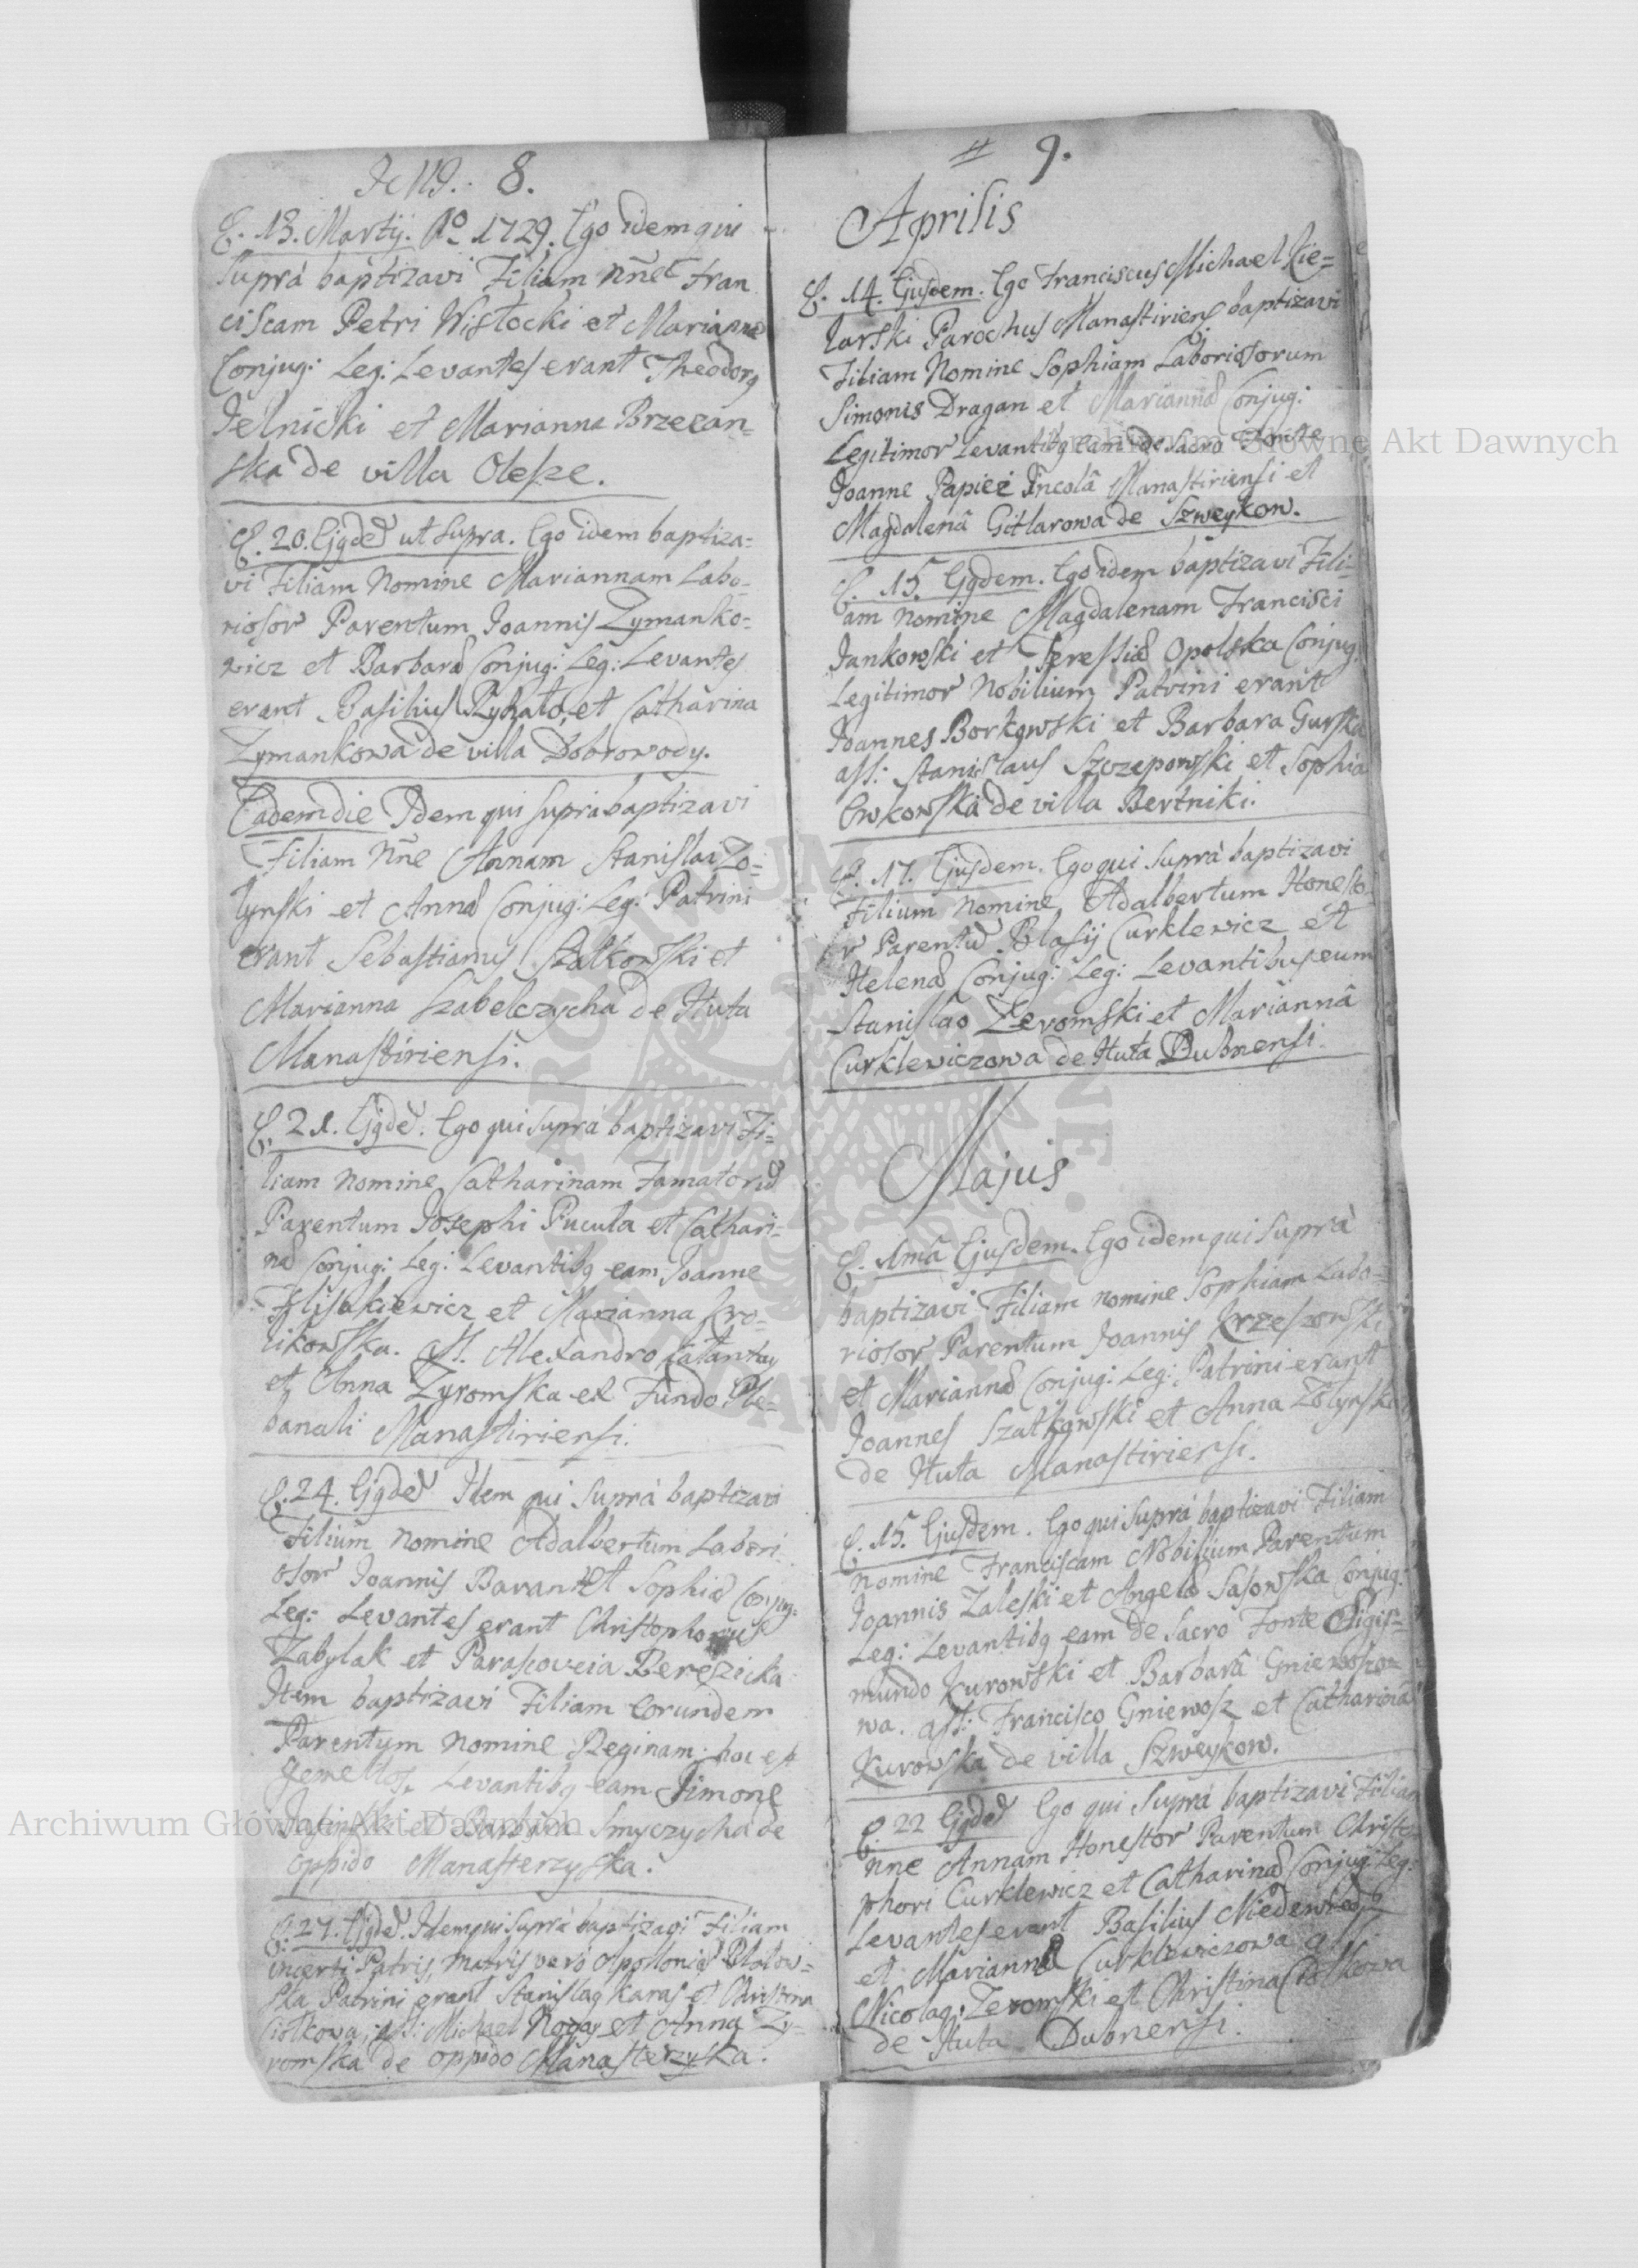 8.
13. Martij. Ao 1729. Ego idem qui
supra baptizavi Filiam Nne Fran
ciscam Petri Wisłocki et Marianna
Conjug: Leg: Levantes erant Theodorg
Jelnicki et Marianna Brzezan=
ska de villa Olesze.
20. Ejgde ut supra. Ego idem baptiza=
vi Filiam Nomine Mariannam Labo=
riosor Parentum Joannis Zymanko=
wicz et Barbara Conjug: Leg: Levantes
erant Basilius et Catharina
Zymankowa de villa Dobrowody.
Eadem die Idem qui supra baptizavi
Filiam Nne Annam Stanislai Zo=
lynski et Anna Conjug: Leg: Patrini
erant Sebastianus Szatkowski et
Marianna Szabelczycha de Huta
Manastiriensi.
21. Ejgde. Ego qui supra baptizavi Fi=
liam Nomine Catharinam Famator
Parentum Josephi Pucuła et Cathari=
na Conjug: Leg: Levantibg eam Joanne
et Marianna Kro=
likowska. Ass. Alexandro
et Anna Zyromska ex Fundo Ple=
banali Manastiriensi.
24. Ejgde Idem qui supra baptizavi
Filium Nomine Adalbertum Labori
osor Joannis Baran et Sophia Conjug:
Leg: Levantes erant Christophorus
Zabylak et Parascoveia
Item baptizavi Filiam Eorundem
Parentum Nomine Reginam: hoc est
gemellos. Levantibg eam Simone
et Barbara Smyczycha de
oppido Manasterzyska.
27. Ejgde. Idem qui supra baptizavi Filiam
incerti Patris, Matris vero Apolonia
ska Patrini erant Stanislag Karas et Christina
Ciołkowa; ass: Michael et Anna Zy=
romska de oppido Manasterzyska.
9.
Aprilis
14. Ejusdem. Ego Franciscus Michael Kie=
larski Parochus Manastiriens baptizavi
Filiam Nomine Sophiam Laboriosorum
Simonis Dragan et Marianna Conjug:
Legitimor Levantibg eam de Sacro Fonte
Joanne Papiez Incolâ Manastiriensi et
Magdalenâ Gitlarowa de Szweykow.
15. Ejgdem. Ego idem baptizavi Fili=
am Nomine Magdalenam Francisci
Jankowski et Teressia Opolska Conjug
Legitimor Nobilium Patrini erant
Joannes Borkowski et Barbara Gurska
ass: Stanislaus Szczepowski et Sophia
Ewkowska de villa Bertniki.
17. Ejusdem. Ego qui supra baptizavi
Filium Nomine Adalbertum Honesto
r Parentu Blasij Curklewicz et
Helena Conjug: Leg: Levantibus eum
Stanislao Zeromski et Mariannâ
Curklewiczowa de Huta Dubnensi.
Majus
1mâ Ejusdem. Ego idem qui supra
baptizavi Filiam nomine Sophiam Labo=
riosor Parentum Joannis Krzeszowski
et Marianna Conjug: Leg: Patrini erant
Joannes Szatkowski et Anna Zolynska
de Huta Manastiriensi.
15. Ejusdem. Ego qui supra baptizavi Filiam
Nomine Franciscam Nobilium Parentum
Joannis Zaleski et Angela Sasowska Conjug:
Leg: Levantibg eam de Sacro Fonte Sigis=
mundo Kurowski et Barbarâ Gniewoszo=
wa. ass: Francisco Gniewosz et Catharinâ
Kurowska de villa Szweykow.
22 Ejgde Ego qui supra baptizavi Filiam
Nne Annam Honestor Parentum Christo
phori Curklewicz et Catharina Conjug: Leg:
Levantes erant Basilius
et Marianna Curklewiczowa ass:
Nicolag: Zeromski et Christina Ciołkowa
de Huta Dubnensi.
Archiwum Główne Akt Dawnych
Archiwum Główne Akt Dawnych